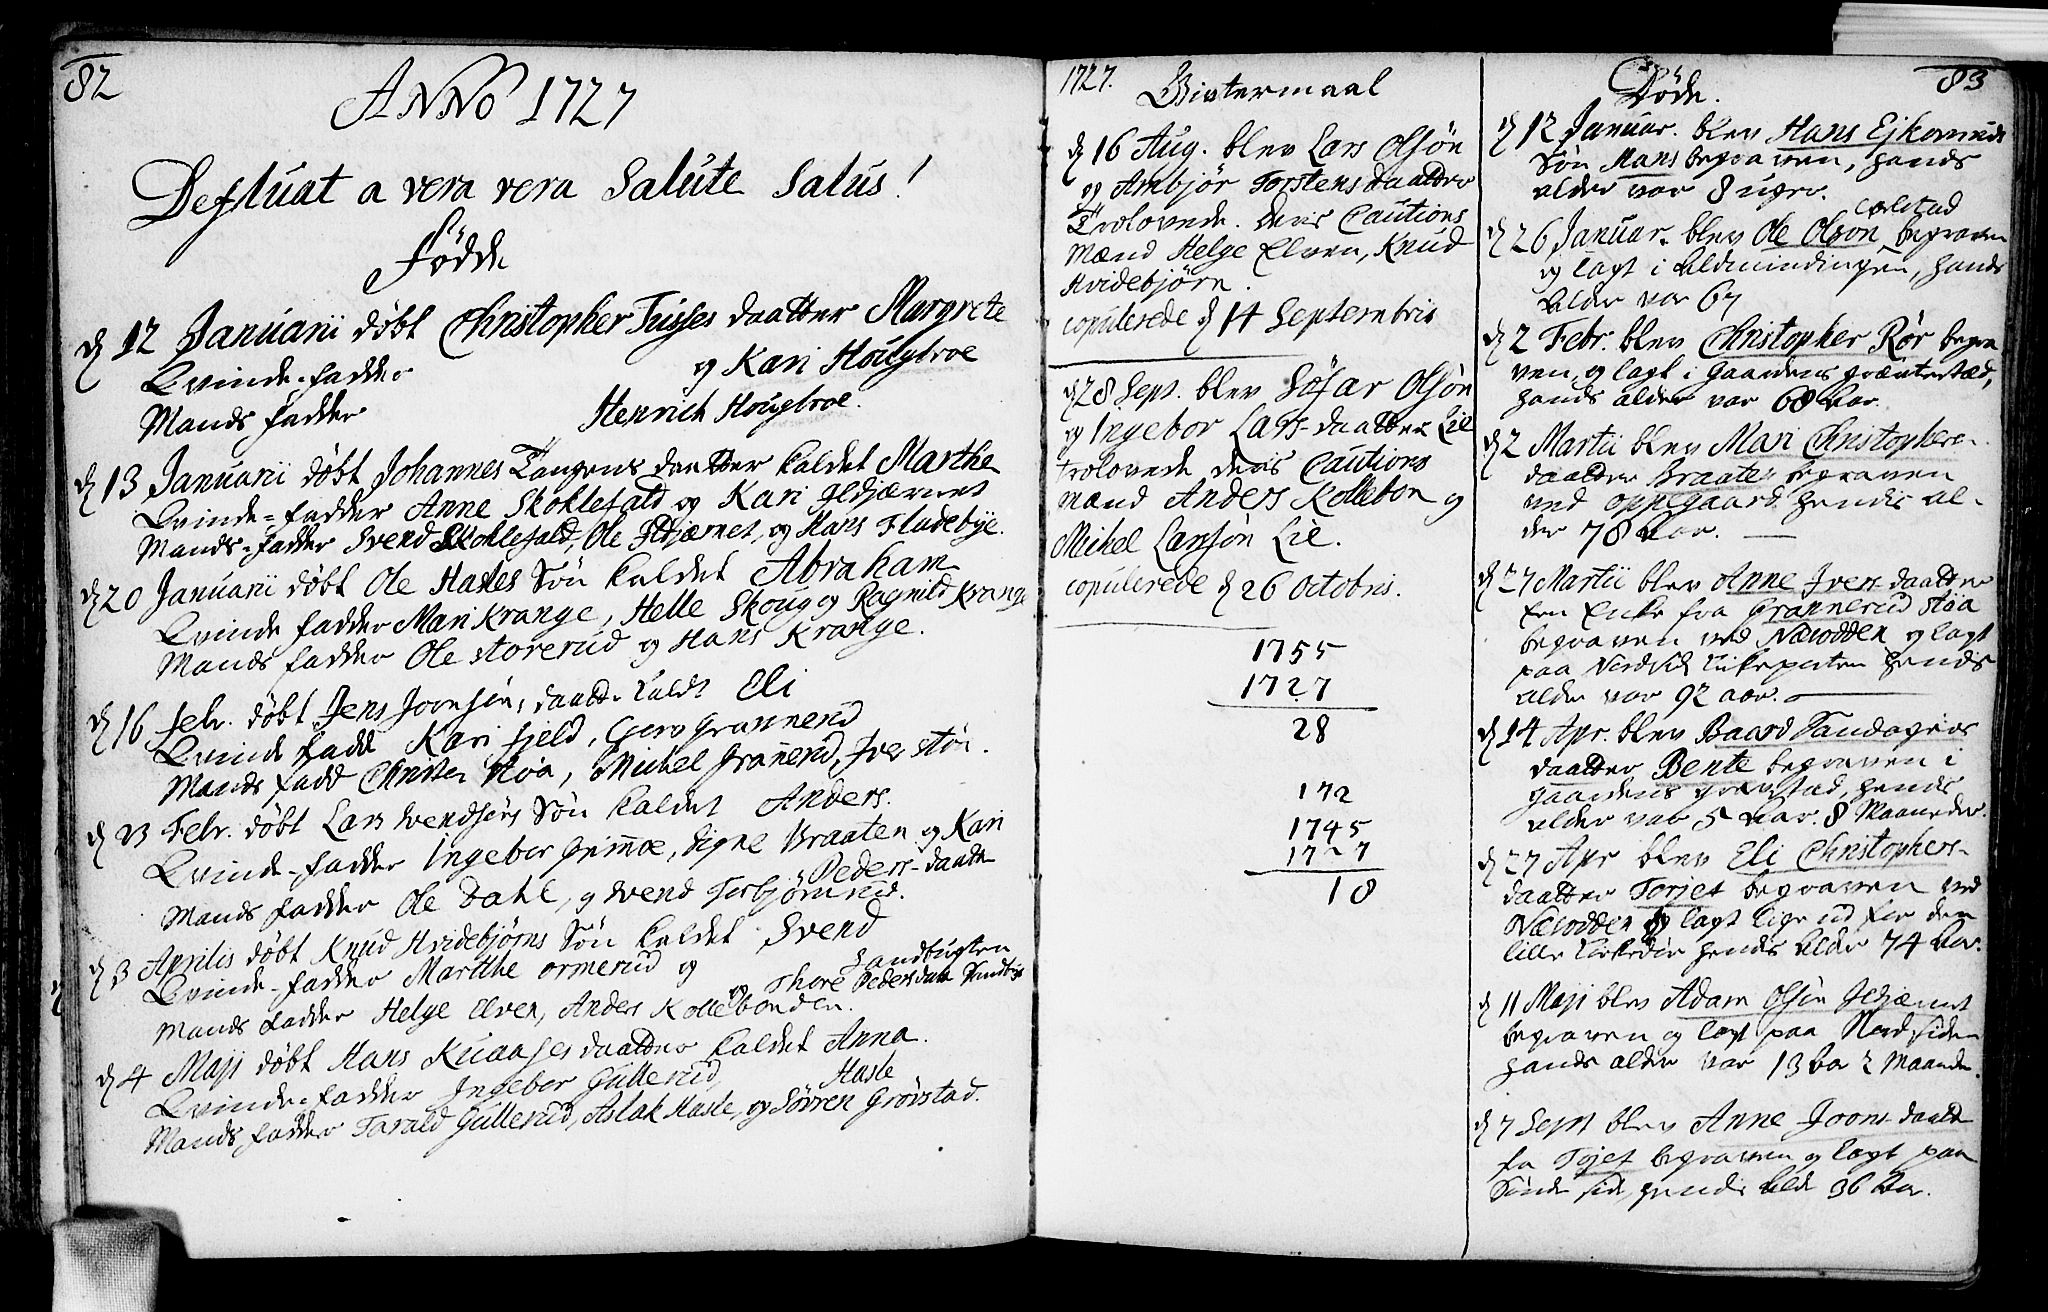 82
ANNO 1727
Defluat a vera vera Salute Salus!
Fødde
d 12 Januarii døbt Christopher Tusses daatter Margrete
Qvinde-fadder og Kari Hougbroe
Mands fadder Henrich Hougbroe.
d 13 Januarii døbt Johannes Tangens daatter kaldet Marthe
Qvinde-fadder Anne Skoklefald og Kari Ildjærnet
Mands-fadder Svend Skoklefald, Ole Ildjærnet, og Hans Fladebye.
d 20 Januarii døbt Ole Hasles Søn kaldet Abraham
Qvinde fadder Mari Krange, Helle Skoug og Ragnild Krange
Mands fadder Ole Storerud og Hans Krange.
d 16 febr. døbt Jens Joensøns daatt. kaldt Eli
Qvinde fadd Kari fjeld, Grannerud
Mands fadd Christen Støa, Michel Grannerud, Iver Støn.
d 23 Febr. døbt Lars Svendsøns Søn kaldet Anders.
Qvinde-fadder Ingebor Grimmoe, Signe Braaten og Kari
Peders-daatt
Mands fadder Ole Dahl, og Svend Torbjørnrud.
d 3 Aprilis døbt Knud Hvidebjørns Søn kaldet Svend
Qvinde-fadder Marthe ormerud og Sandbugten
og Thore Pedersdaat Sandbug
Mands fadder Helge Elven, Anders Kollebonden.
d 4 Maji døbt Hans Knaases daatter kaldet Anna.
Qvinde-fadder Ingebor Gullerud, Hasle
Mands fadder Tarald Gullerud, Aslak Hasle, og Søvren Grøvstad.
1727.
d 16 Aug. blev Lars Olsøn
og Ambjør Torstensdaatter
Trolovede. deris Cautions
Mænd Helge Elven, Knud
Hvidebjørn.
copulerede d 14 Septembris
d 28 Sept. blev Søfar Olsøn
og Ingebor Lars-daatter Lie
trolovede deris Cautions
mænd Anders Kollebon og
Mikel Larssøn Lie.
copulerede d 26 Octobris.
1755
1727
28
172
1745
1727
18
83
Døde.
d 12 Januar. blev Hans Ejkornruds
Søn Mans begraven, hands
alder var 8 uger.
Colstad
d 26 Januar. blev Ole Olson begraven
og lagt i Aldmindingen, hands
Alder var 67
d 2 Febr. blev Christopher Rør begra
ven, og lagt i Gaardens
hands alder var 68 Aar.
d 2 Martii blev Mari Christophers-
daatter Braaten begraven
ved Oppegaard hendis al-
der 78 Aar.
d 27 Martii blev Anne Ivers-daatter
een Enke fra Grannerud støa
begraven ved Næsodden og lagt
paa Nordsid hendis
alder var 92 aar.
d 14 Apr. blev Baard Sandagers
daatter Bente begraven i
gaardens gravstad, hends
alder var 5 Aar. 8 Maaneder.
d 27 Apr blev Eli Christophers-
daatter Torjet begraven ved
Næsodden og lagt lige ud for den
lille Kirkedør hendis Alder 74 Aar.
d 11 Maji blev Adam Olsøn Ildjærnet
begraven og lagt paa Nordsiden
hands alder var 13 Aar 2 Maaneder.
d 7 Sept blev Anne Joens-daatt
fra Tojet begraven og lagt paa
Sønder side, hendis Alder 36 Aar.